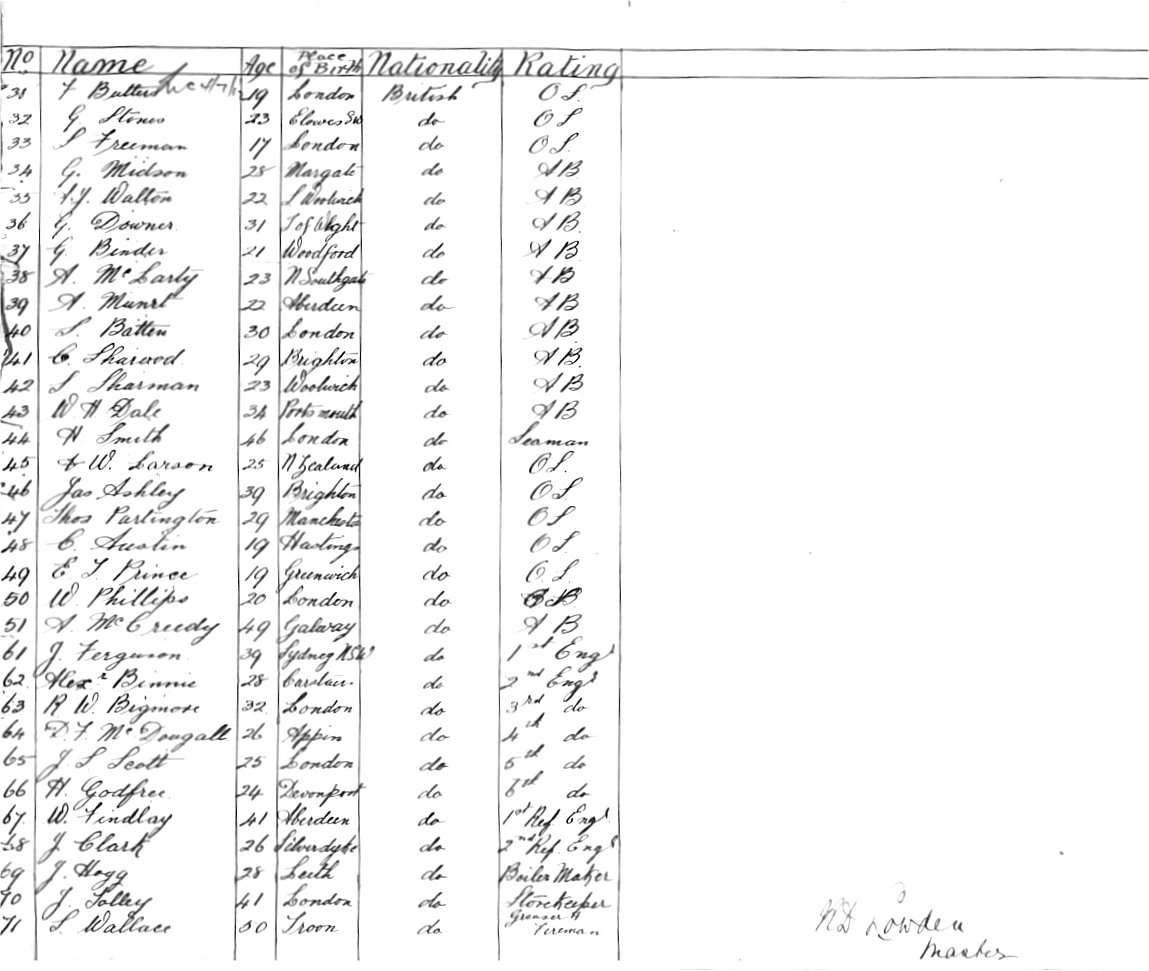 No Name Age Place of Birth Nationality Rating
31 F Butters 19 London British O S.
32 G. Stones 23 do O S
33 S Freeman 17 London do O S.
34 G. Midson 28 Margate do A B
35 A.J. Walton 22 S Woolwich do A B
36 G. Downer 31 I of Wight do A B.
37 G. Binder 21 Woodford do A B
38 A. McLarty 23 N Southgate do A B
39 A. Munro 22 Aberdeen do A B
40 S. Batten 30 London do A B.
41 C. Sharwod 29 Brighton do A B.
42 S Sharman 23 Woolwich do A B
43 W H Dale 34 Portsmouth do A B
44 H Smith 46 London do Seaman
45 W. Larson 25 N Zealand do O S.
46 Jas Ashley 39 Brighton do O S
47 Thos Partington 29 Manchester do O S
48 C. Austin 19 Hastings do O S.
49 E. T. Prince 19 Greenwich do O. S.
50 W. Phillips 20 London do B
51 A. McCreedy 49 Galway do A B
61 J. Ferguson 39 Sydney NSW do 1st Engr
62 Alexr Binnie 28 Carstairs do 2nd Engr
63 R W. Bigmore 32 London do 3rd do
64 D. F. McDougall 26 Appin do 4th do
65 J. S Scott 25 London do 5th do
66 H. Godfree 24 Devonport do 6th do
67. W. Findlay 41 Aberdeen do 1st Ref Engr
68 J. Clark 26 Silverdyke do 2nd Ref. Engr
69 J. Hogg 28 Leith do Boiler Maker
70 J. Solley 41 London do Storekeeper
71 S. Wallace 50 Troon do Greaser & Fireman
Lowden
Master